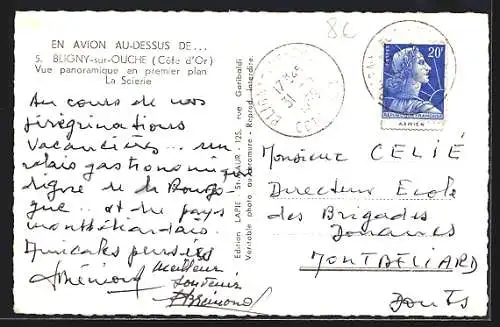 8C
EN AVION AU-DESSUS DE...
5. BLIGNY-sur-OUCHE (Côte d'Or)
Vue panoramique en premier plan
La Scierie
Au cours de nos
pérégrinations
vacancières... un
relais gastronomique
digne de la Bourgo-
gne... et du pays
montbéliardais.
Amicales pensées
meilleur
souvenir
Brémond
Edition LAPIE St-MAUR - 125, Avenue Garibaldi
Véritable photo au bromure - Reprod. interdite.
BLIGNY
17H45
31
20F
REPUBLIQUE FRANÇAISE
Monsieur CELIÉ
Directeur École
des Brigades
Douanes
MONTBÉLIARD
Doubs